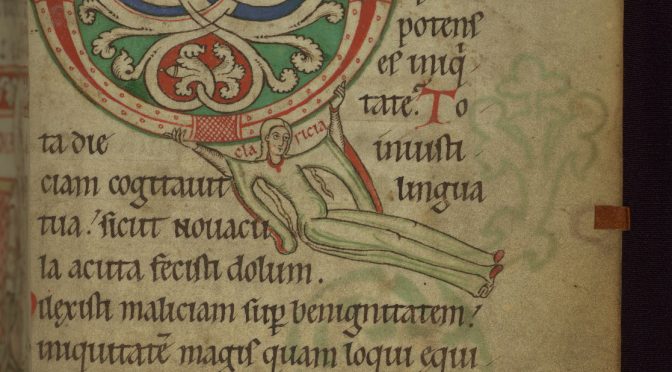 potens
es iniq̇
tate. To
cla ricia
ta die iniusti
ciam cogitauit lingua
tua: sicut nouacu
la acuta fecisti dolum.
Dilexisti maliciam sup̄ benignitatem:
iniquitatē magis quam loqui equi